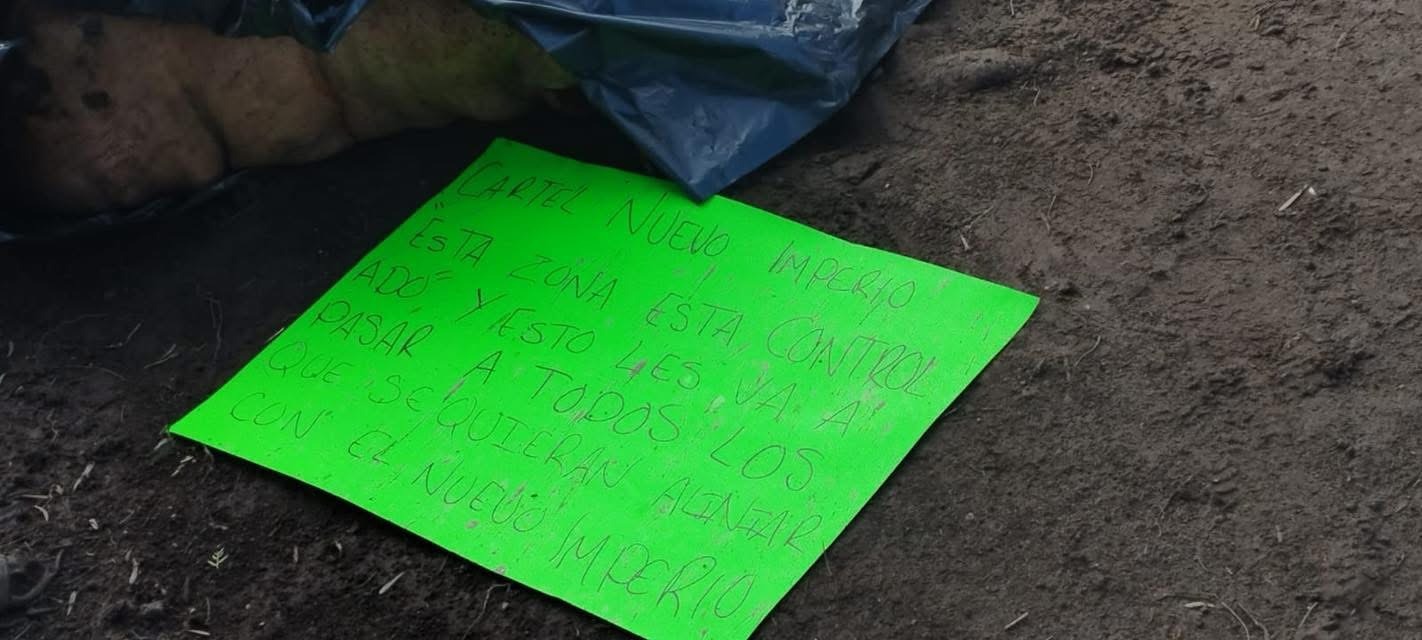 CARTEL NUEVO IMPERIO
"ESTA ZONA ESTA CONTROL
ADO" Y ESTO LES VA A
PASAR A TODOS LOS
QUE SE QUIERAN ALINIAR
CON EL NUEVO IMPERIO